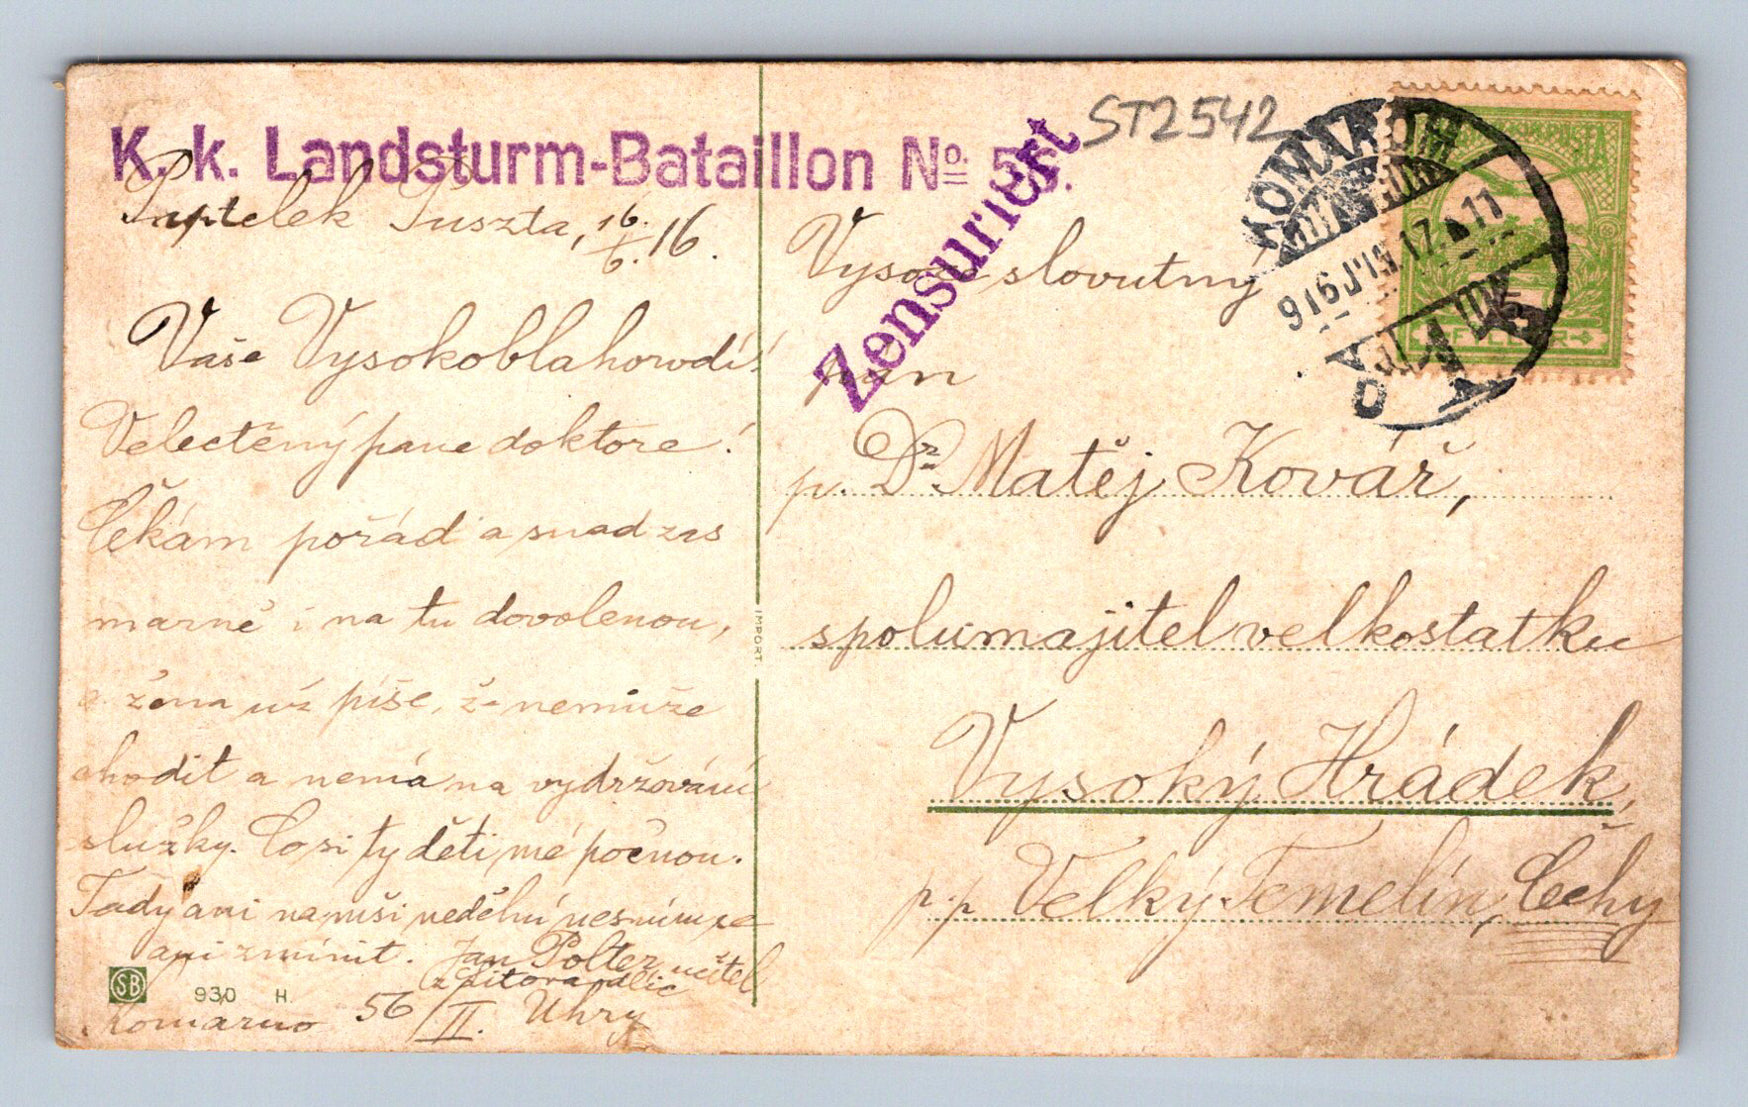 K. k. Landsturm-Bataillon No 56.
Zensuriert
ST2542
KOMÁROM
916 JUN 17 A 11
Puszta, 16/6. 16.
Vaše Vysokoblahorodí!
Velectěný pane doktore!
Čekám pořád a snad zas
marně i na tu dovolenou,
a žena už píše, že nemůže
chodit a nemá na vydržování
služky. Co si ty děti mé počnou.
Tady ani na mši nedělní nesmím se
ani zmínit. Jan Polter učitel
z Litoradlic
Komárno 56/II. Uhry
SB 930 H.
IMPORT.
Vysoce slovutný
pan
p. Dr. Matěj Kovář,
spolumajitel velkostatku
Vysoký Hrádek,
p. p. Velký Temelín, Čechy